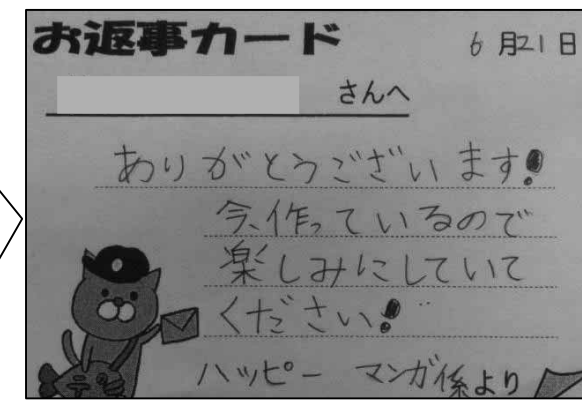 お返事カード 6月21日
さんへ
ありがとうございます!
今、作っているので
楽しみにしていて
ください!
ハッピー マンガ係より